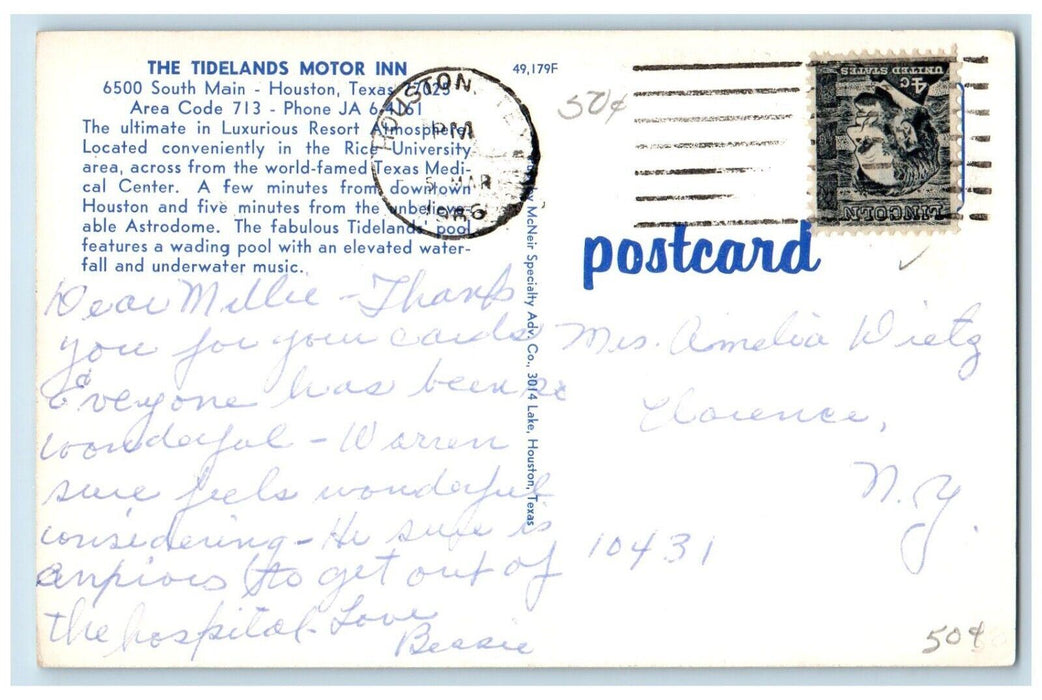 THE TIDELANDS MOTOR INN
6500 South Main - Houston, Texas 77025
Area Code 713 - Phone JA 6-4161
The ultimate in Luxurious Resort Atmosphere.
Located conveniently in the Rice University
area, across from the world-famed Texas Medi-
cal Center. A few minutes from downtown
Houston and five minutes from the unbeliev-
able Astrodome. The fabulous Tidelands pool
features a wading pool with an elevated water-
fall and underwater music.
49,179F
HOUSTON, TEX
PM
5 MAR
196
50¢
4¢
UNITED STATES
LINCOLN
postcard
by McNeir Specialty Adv. Co., 3014 Lake, Houston, Texas
Dear Millie - Thank
you for your cards
& Everyone has been so
wonderful - Warren
sure feels wonderful
considering - He sure is
anxious to get out of
the hospital - Love
Bessie
Mrs. Amelia Dietz
Clarence,
N. Y.
10431
50¢